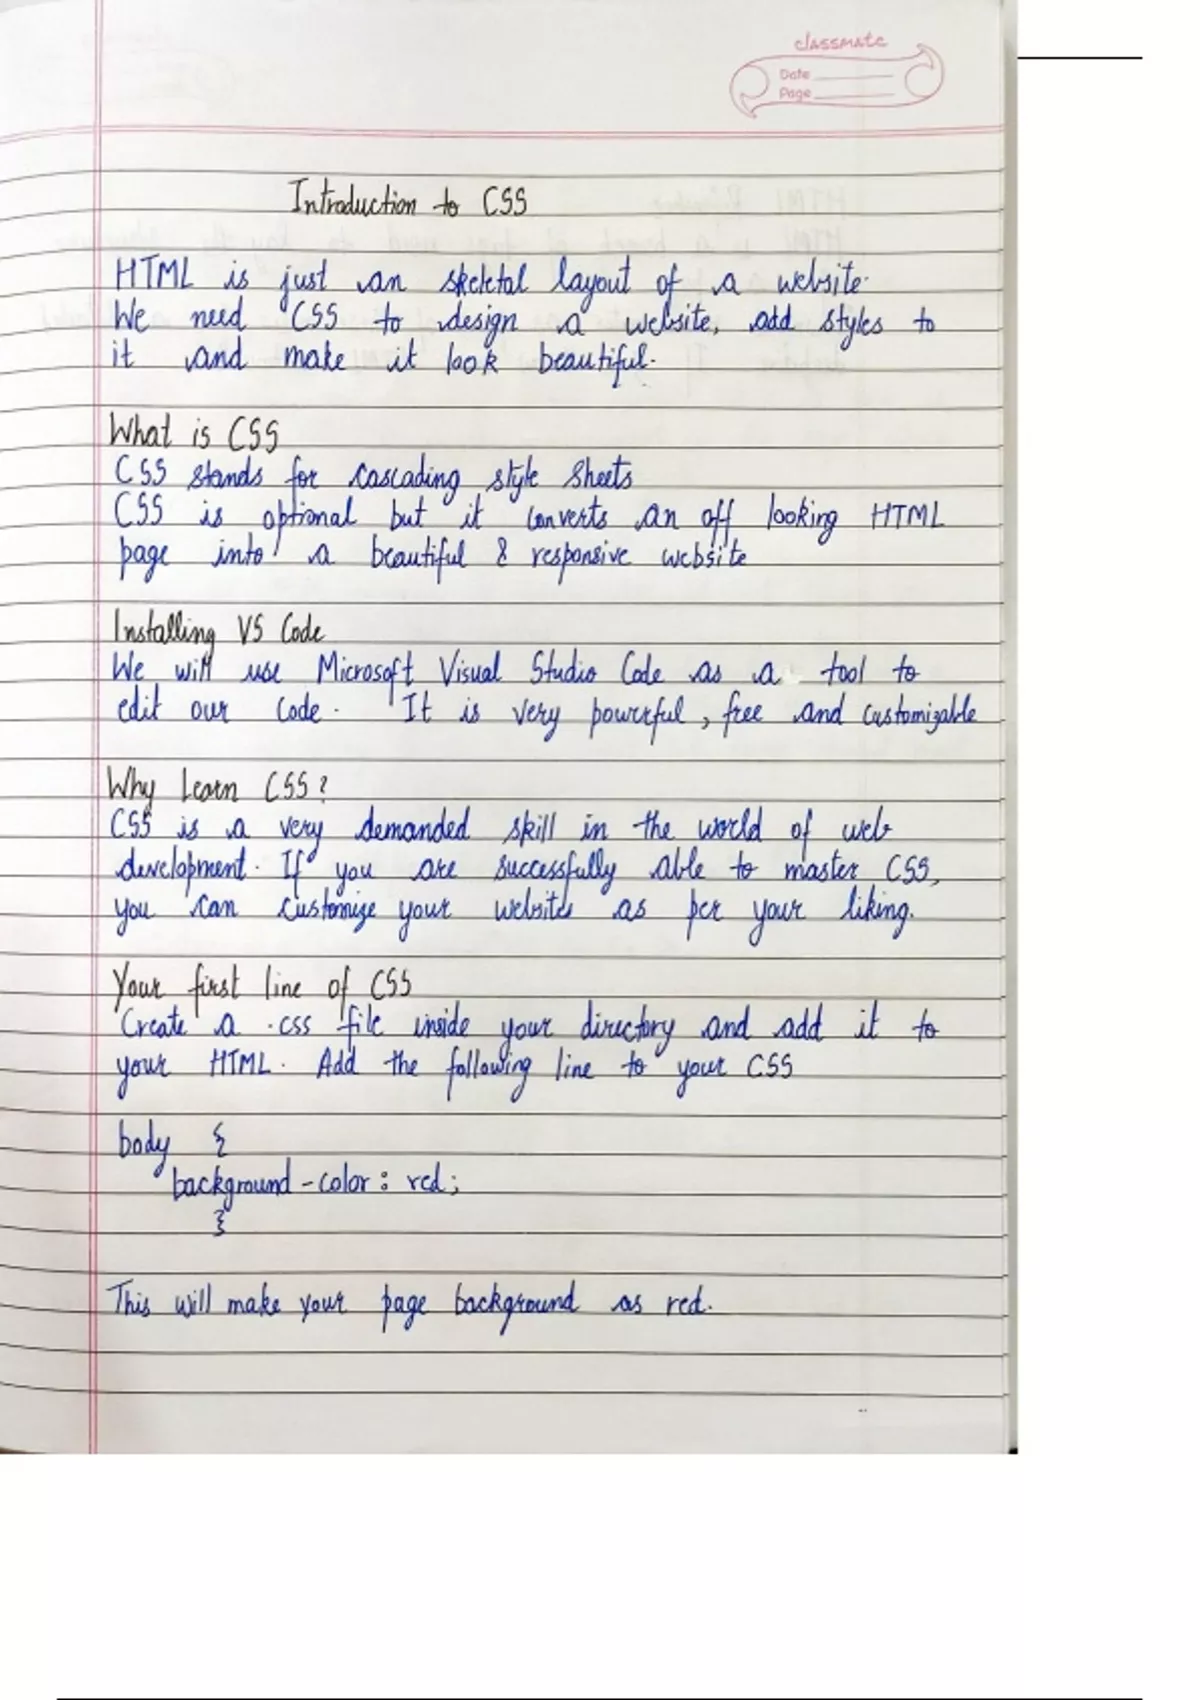 classmate
Date
Page
Introduction to CSS
HTML is just an skeletal layout of a website.
We need CSS to design a website, add styles to
it and make it look beautiful.
What is CSS
CSS stands for cascading style sheets
CSS is optional but it converts an off looking HTML
page into a beautiful & responsive website
Installing VS Code
We will use Microsoft Visual Studio Code as a tool to
edit our code. It is very powerful, free and customizable
Why Learn CSS?
CSS is a very demanded skill in the world of web
development. If you are successfully able to master CSS,
you can customize your website as per your liking.
Your first line of CSS
Create a .css file inside your directory and add it to
your HTML. Add the following line to your CSS
body {
background-color: red;
}
This will make your page background as red.